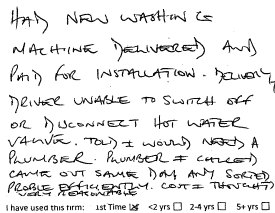 HAD NEW WASHING
MACHINE DELIVERED AND
PAID FOR INSTALLATION. DELIVERY
DRIVER UNABLE TO SWITCH OFF
OR DISCONNECT HOT WATER
VALVE. TOLD I WOULD NEED A
PLUMBER. PLUMBER I CALLED
CAME OUT SAME DAY AND SORTED
PROBLEM EFFICIENTLY. COST I THOUGHT
VERY REASONABLE
I have used this firm: 1st Time <2 yrs 2-4 yrs 5+ yrs